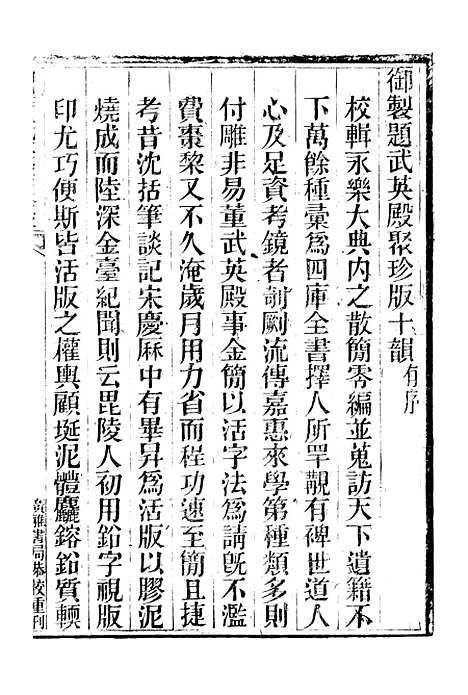 御製題武英殿聚珍版十韻有序
校輯永樂大典內之散簡零編並蒐訪天下遺籍不
下萬餘種彙爲四庫全書擇人所罕覯有裨世道人
心及足資考鏡者剞劂流傳嘉惠來學第種類多則
付雕非易董武英殿事金簡以活字法爲請旣不濫
費棗梨又不久淹歲月用力省而程功速至簡且捷
考昔沈括筆談記宋慶厤中有畢昇爲活版以膠泥
燒成而陸深金臺紀聞則云毘陵人初用鉛字視版
印尤巧便斯皆活版之權輿顧埏泥體麤鎔鉛質輭
廣雅書局恭校重刊